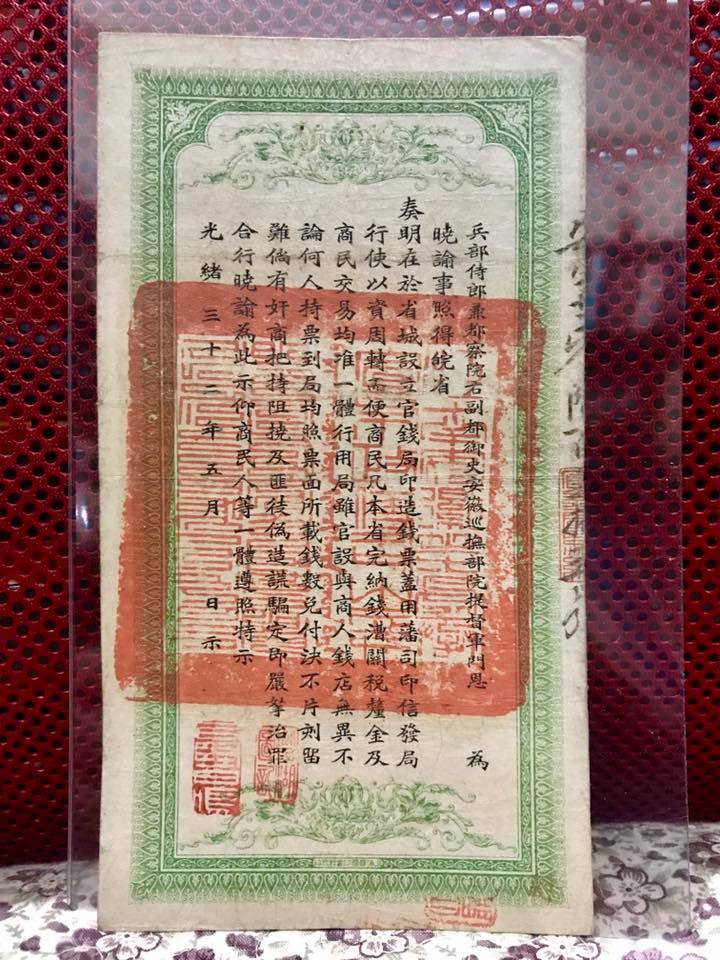 兵部侍郎兼都察院右副都御史安徽巡撫部院提督軍門恩　為
曉諭事照得皖省
奏明在於省城設立官錢局印造錢票蓋用藩司印信發局
行使以資周轉而便商民凡本省完納錢漕關稅釐金及
商民交易均准一體行用局雖官設與商人錢店無異不
論何人持票到局均照票面所載錢數兌付決不片刻留
難倘有奸商把持阻撓及匪徒偽造謊騙定即嚴拏治罪
合行曉諭為此示仰商民人等一體遵照特示
光緒三十二年五月　日示